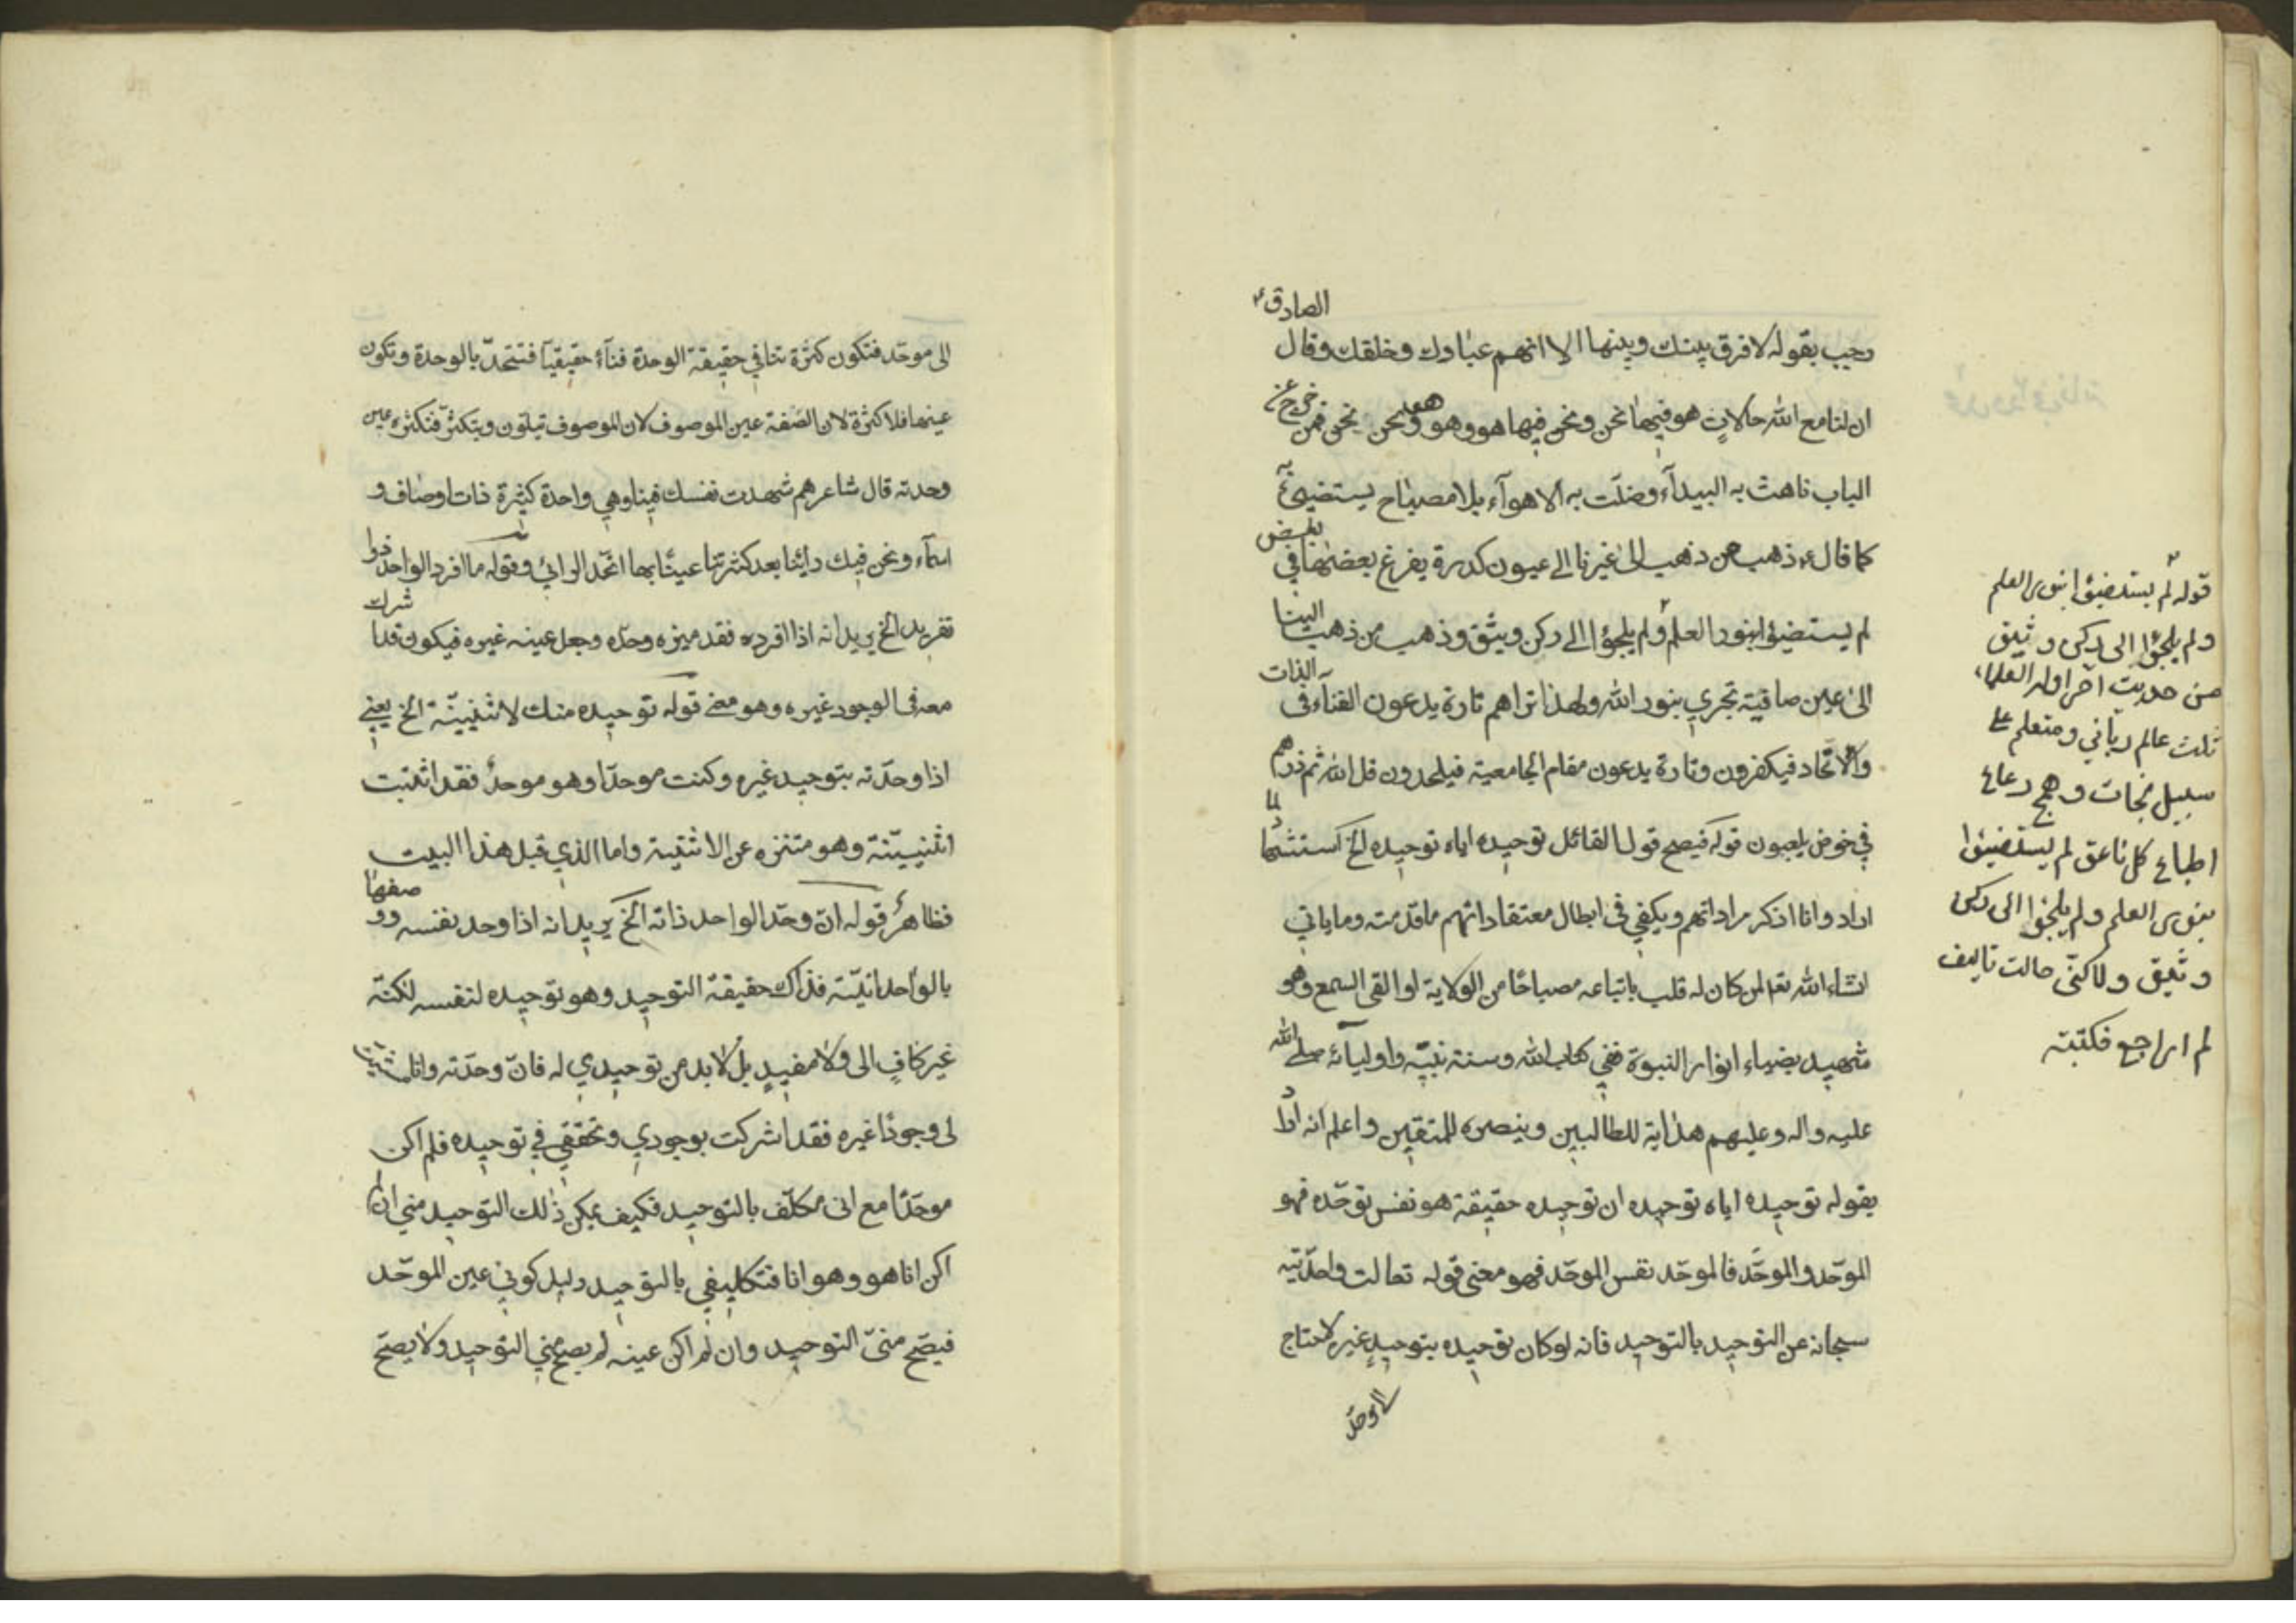 رجب بقوله لا فرق بينك وبينها الا انهم عبادك وخلقك وقال الصادق ع
ان لنا مع الله حالات هو فيها نحن ونحن فيها هو وهو هو ونحن نحن فمن خرج عن
الباب تاهت به البيدآء وضلّت به الاهوآء بلا مصباح يستضيئ به
كما قال ع ذهب من ذهب الى غيرنا الى عيون كدرة يفرغ بعضها في بعض
لم يستضيؤا بنور العلم ولم يلجؤا الى ركن وثيق وذهب من ذهب الينا
الى عين صافية تجري بنور الله ولهذا تراهم تارة يدعون الفنآء فى الذات
والاتّحاد فيكفرون وتارة يدعون مقام الجامعية فيلحدون قل الله ثم ذرهم
في خوض يلعبون قوله فيصح قول القائل توحيده اياه توحيده الخ استشهد لما
اراد وانا اذكر مراداتهم ويكفي فى ابطال معتقداتهم ما قدّمته وما ياتي
انشاء الله تعا لمن كان له قلب باتباعه مصباحًا من الولاية او القى السمع وهو
شهيد بضياء انوار النبوة ففي كتاب الله وسنة نبيّه واوليائه صلى الله
عليه واله وعليهم هداية للطالبين وينصره للمتقين واعلم انه اراد
بقوله توحيده اياه توحيده ان توحيده حقيقة هو نفس توحّده فهو
الموحّد والموحَّد فالموحّد نفس الموحّد فهو معنى قوله تعالت واحدّيّته
سبحانه عن التوحيد بالتوحيد فانه لو كان توحيده بتوحيدٍ غيره لاحتاج
الى موحّد
قوله لم يستضيؤا بنور العلم
ولم يلجؤا الى ركن وثيق
من حديث اخر اوله العلماء
ثلث عالم رباني ومتعلم على
سبيل نجات وهمج رعاع
اطباع كل ناعق لم يستضيؤا
بنور العلم ولم يلجؤا الى ركن
وثيق ولاكنّى حالت تاليف
لم اراجع فكتبته
الى موحّد فتكون كثرة تنافي حقيقة الوحدة فنآءً حقيقيّا فتتّحد بالوحدة وتكون
عينها فلا كثرة لان الصّفة عين الموصوف لان الموصوف يتلون ويتكثّر فتكثره عين
وحدته قال شاعرهم شهدت نفسك فينا وهي واحدة كثيرة ذات اوصاف و
اسمآء ونحن فيك رأينا بعد كثرتنا عينًا بها اتّحد الرائي وقوله ما افرد الواحد ذوا
تفريد الخ يريد انه اذا افرده فقد ميزه وحدّه وجعل عينه غيره فيكون قد اشرك
معه فى الوجود غيره وهو معنى قوله توحيده منك لاثنينيّة الخ يعني
اذا وحدّته بتوحيد غيره وكنت موحدّا وهو موحدٌ فقد اثبتت
اثنينيّته وهو متنزه عن الاثنينة واما الذي قبل هذا البيت
فظاهرٌ قوله ان وحّد الواحد ذاته الخ يريد انه اذا وحد نفسه ووصفها
بالواحدانيّة فذاك حقيقة التوحيد وهو توحيده لنفسه لكنّه
غير كافٍ الى ولا مفيدٍ بل لابد من توحيدي له فان وحدّته وانا اثبت
لى وجودًا غيره فقد اشركت بوجودي وتحققي في توحيده فلم اكن
موحّدًا مع انى مكلّف بالتوحيد فكيف يمكن ذلك التوحيد مني ان لم
اكن انا هو وهو انا فتكليفي بالتوحيد دليل كوني عين الموحّد
فيصّح منىّ التوحيد وان لم اكن عينه لم يصح منى التوحيد ولا يصّح